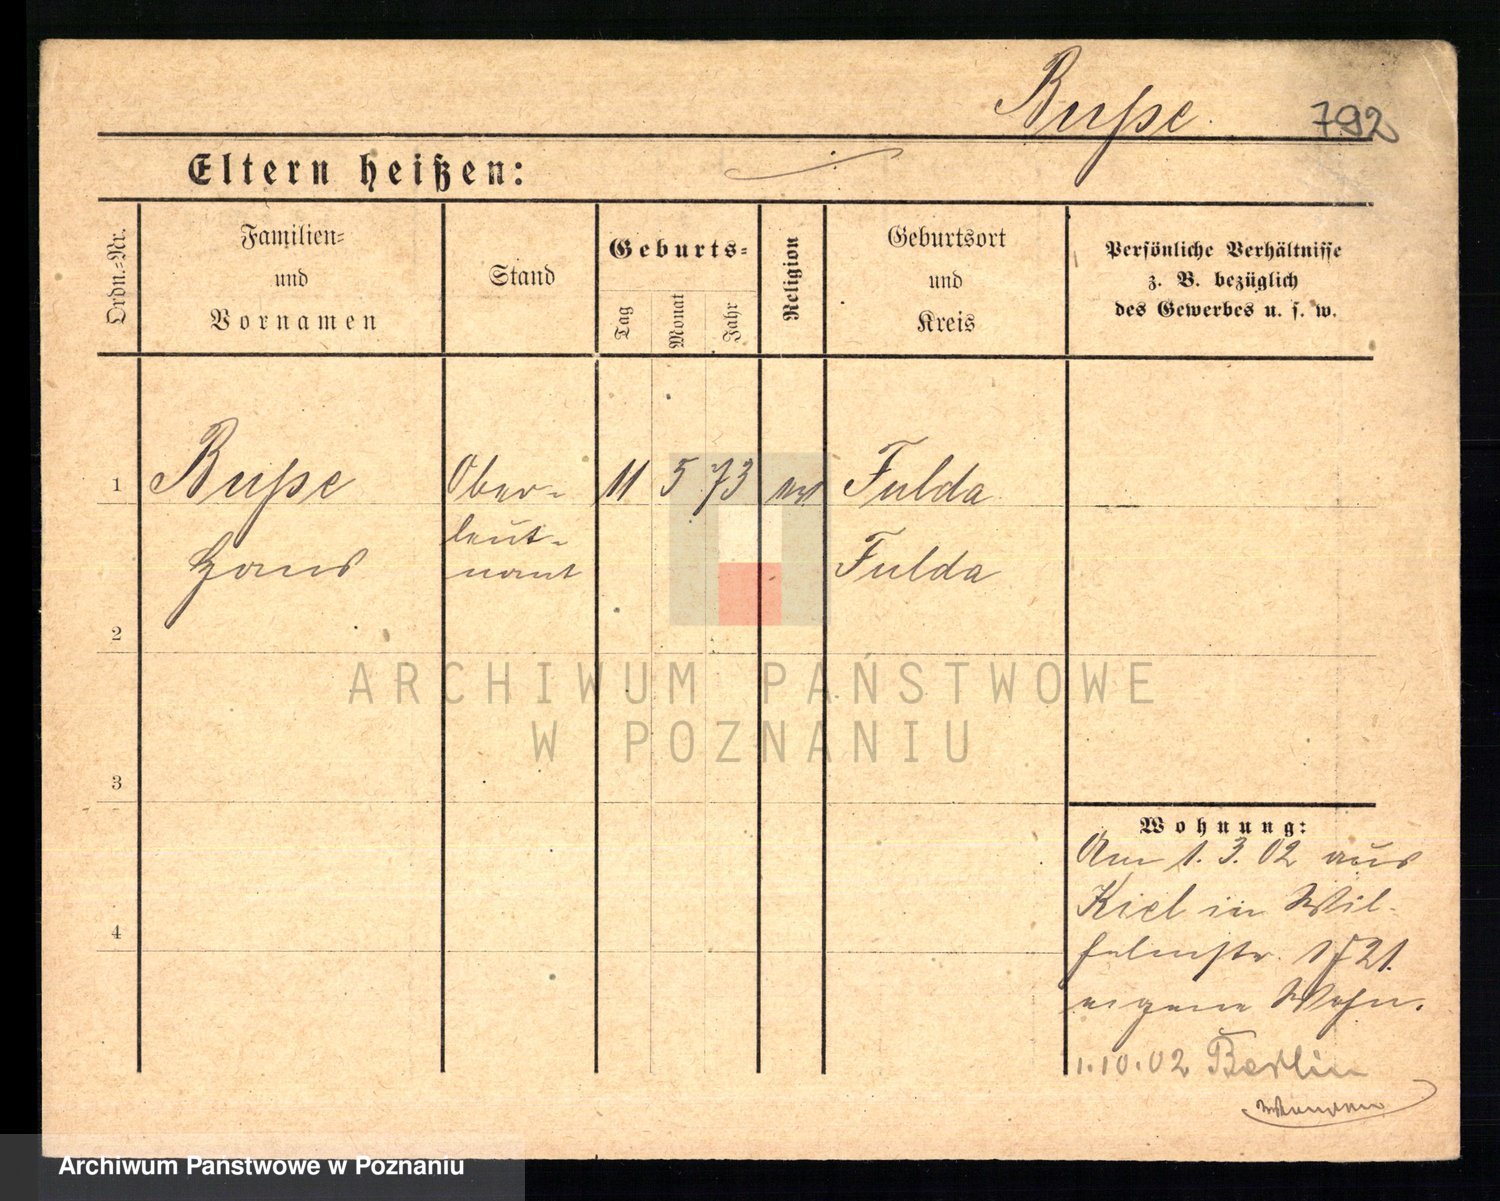 Bußse.
792
Eltern heißen:
Ordn.-Nr.
Familien-
und
Vornamen
Stand
Geburts-
Tag
Monat
Jahr
Religion
Geburtsort
und
Kreis
Persönliche Verhältnisse
z. B. bezüglich
des Gewerbes u. s. w.
1 Buße Ober- 11 5 73 ev Fulda
Hans leut- Fulda
nant
2
3
4
Wohnung:
Am 1. 3. 02 aus
Kiel in Wil-
helmstr. 21.
eigene Wohn.
1.10.02 Berlin
ARCHIWUM PAŃSTWOWE
W POZNANIU
Archiwum Państwowe w Poznaniu